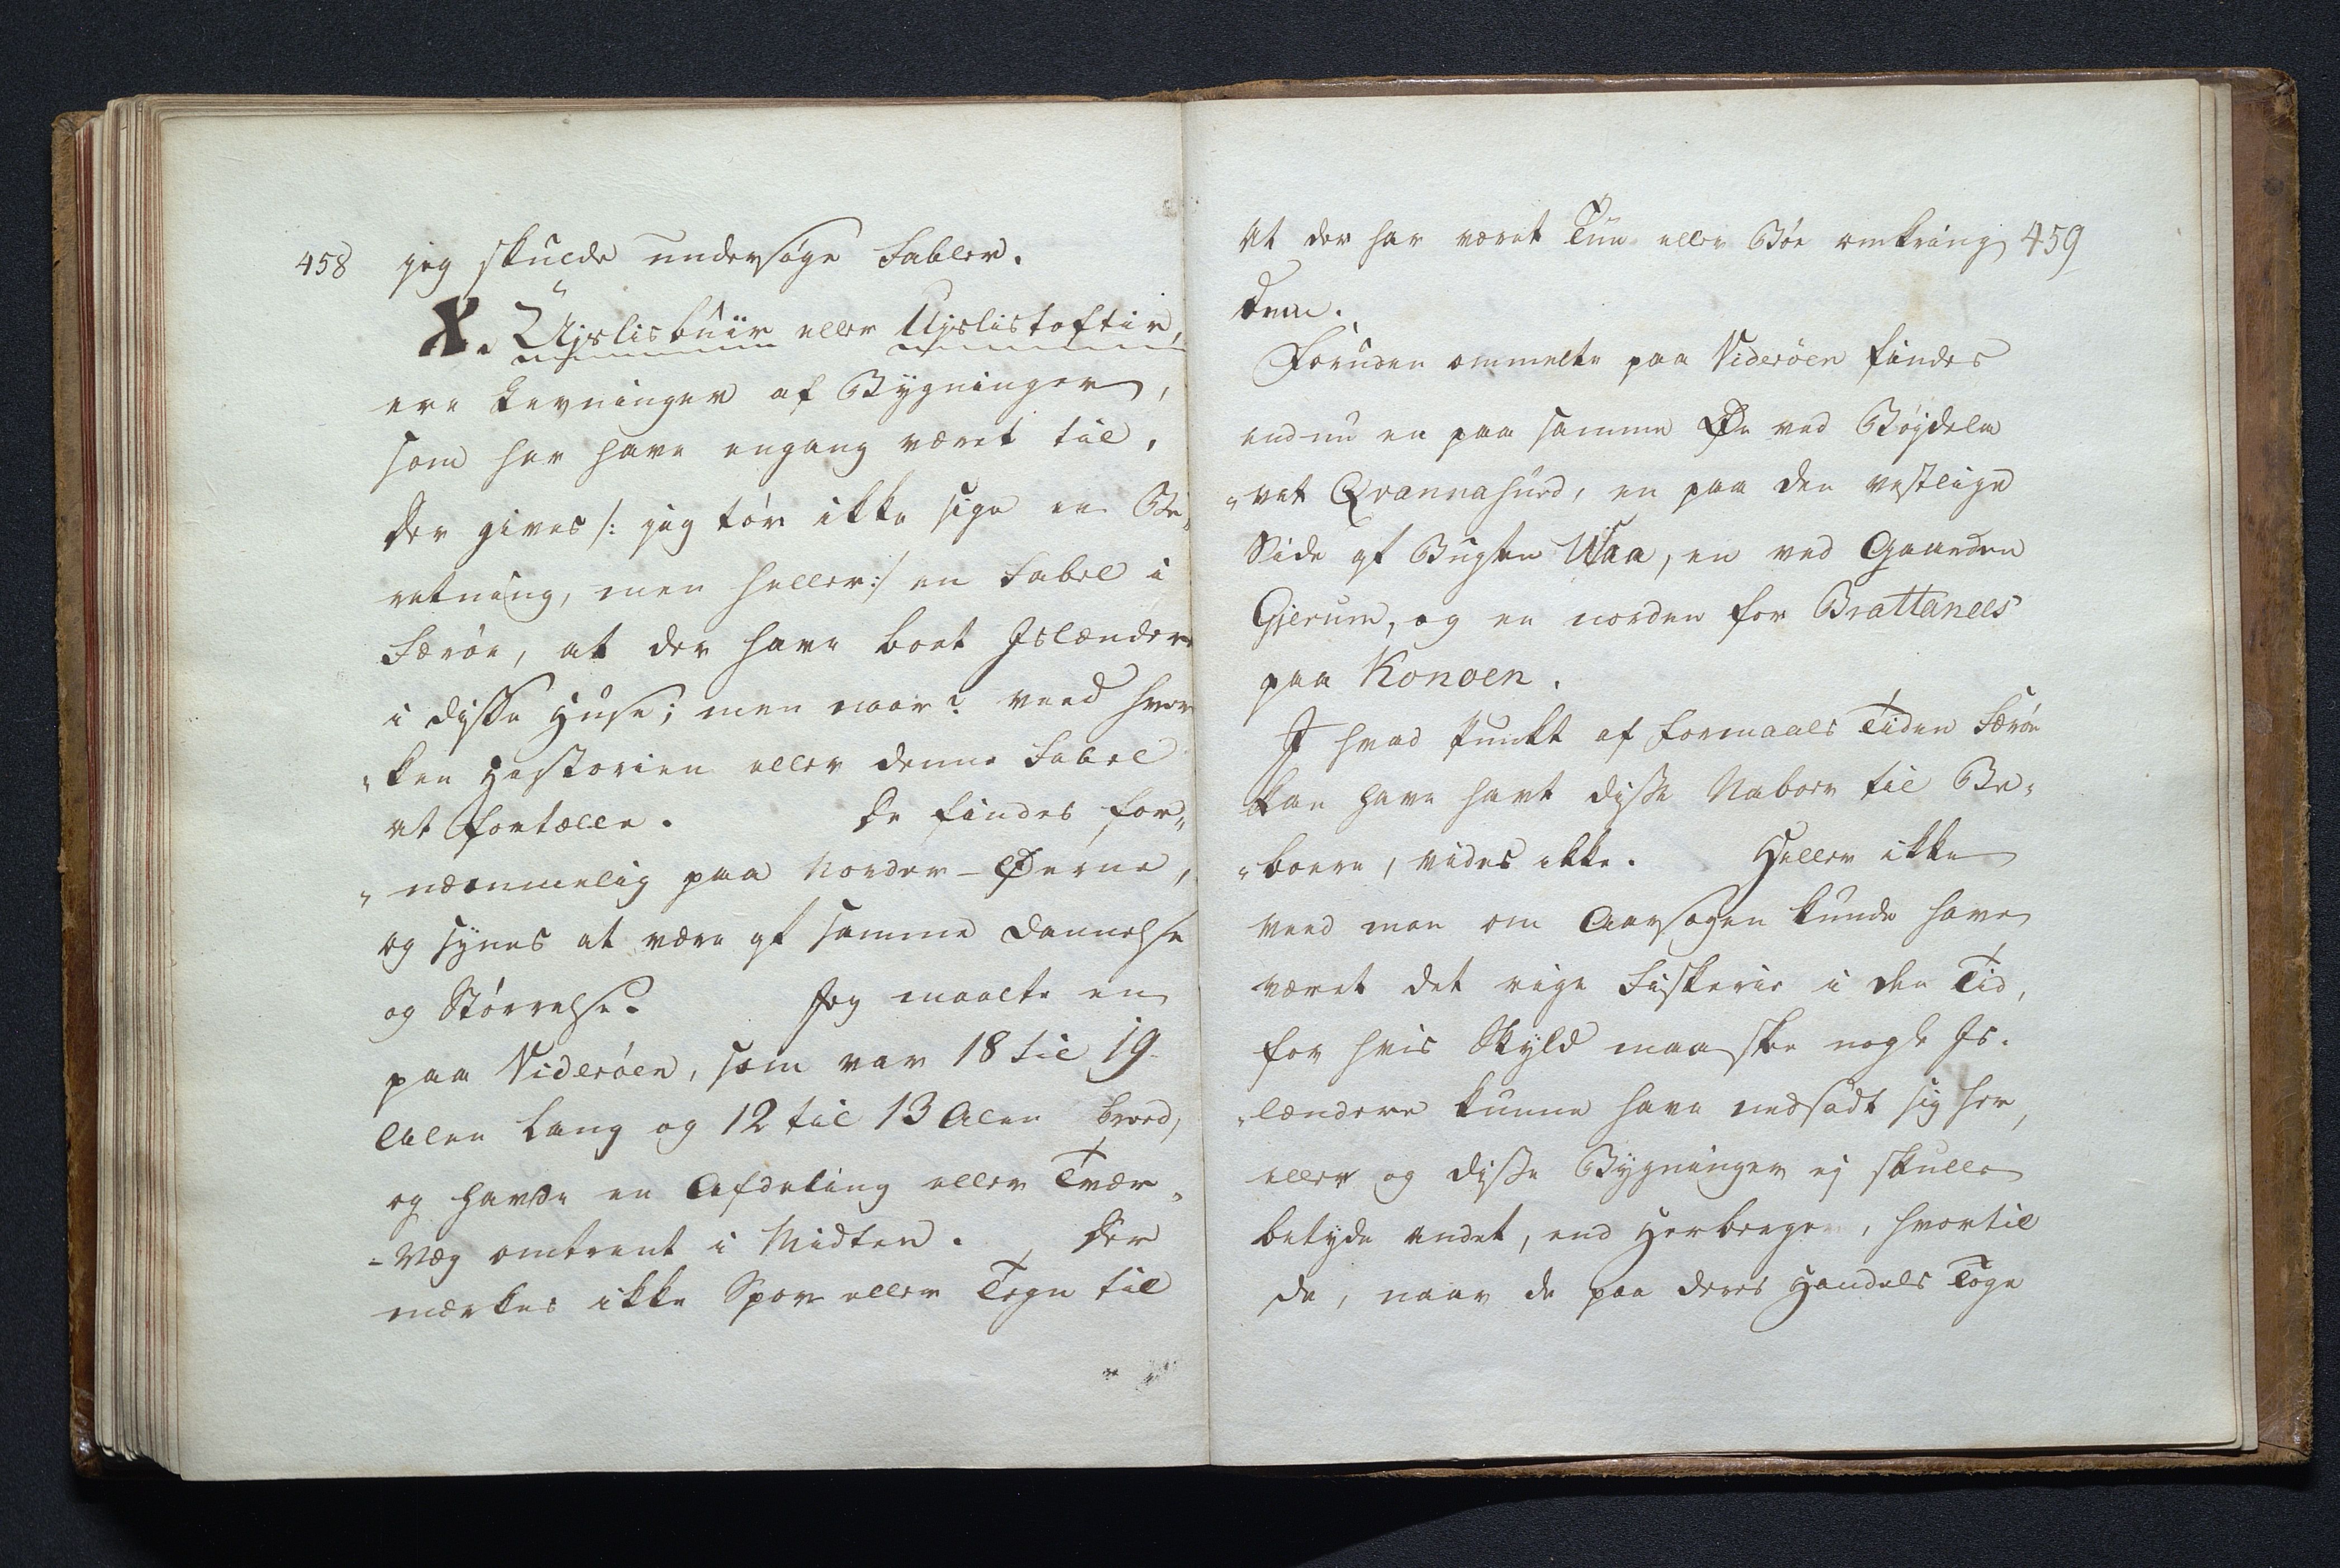 458
jeg skulde undersøge Fabler.
X. Ujslisbúir eller Ujslistoftir,
ere Levninger af Bygninger,
som her have engang været til.
Der gives /: jeg tør ikke sige en Be„
retning, men heller :/ en Fabel i
Færøe, at der have boet Islændere
i disse Huse; men naar? veed hver
„ken Historien eller denne Fabel
at fortælle. De findes for„
„nemmelig paa Norder-Øerne,
og synes at være af samme Dannelse
og Størrelse. Jeg maalte en
paa Viderøen, som var 18 til 19
Alen lang og 12 til 13 Alen bred,
og havde en Afdeling eller Tvær„
-Væg omtrent i Midten. Der
mærkes ikke Spor eller Tegn til
459
at der har været Tun eller Bøe omkring
dem.
Foruden ommelte paa Viderøen findes
endnu en paa samme Øe ved Bøjdela„
„vet Qvannasund, en paa den vestlige
Side af Bugten Waa, en ved Gaarden
Gjerum, og en norden for Brattanees
paa Konoen.
I hvad Punkt af formaals Tiden Færøe
kan have havt disse Naboer til Be„
„boere, vides ikke. Heller ikke
veed man om Aarsagen kunde have
været det rige Fiskerie i den Tid,
for hvis Skyld maaskee nogle Is„
„lændere kunne have nedsadt sig her,
eller og disse Bygninger ej skulle
betyde andet, end Herberger, hvortil
de, naar de paa deres Handels Toge